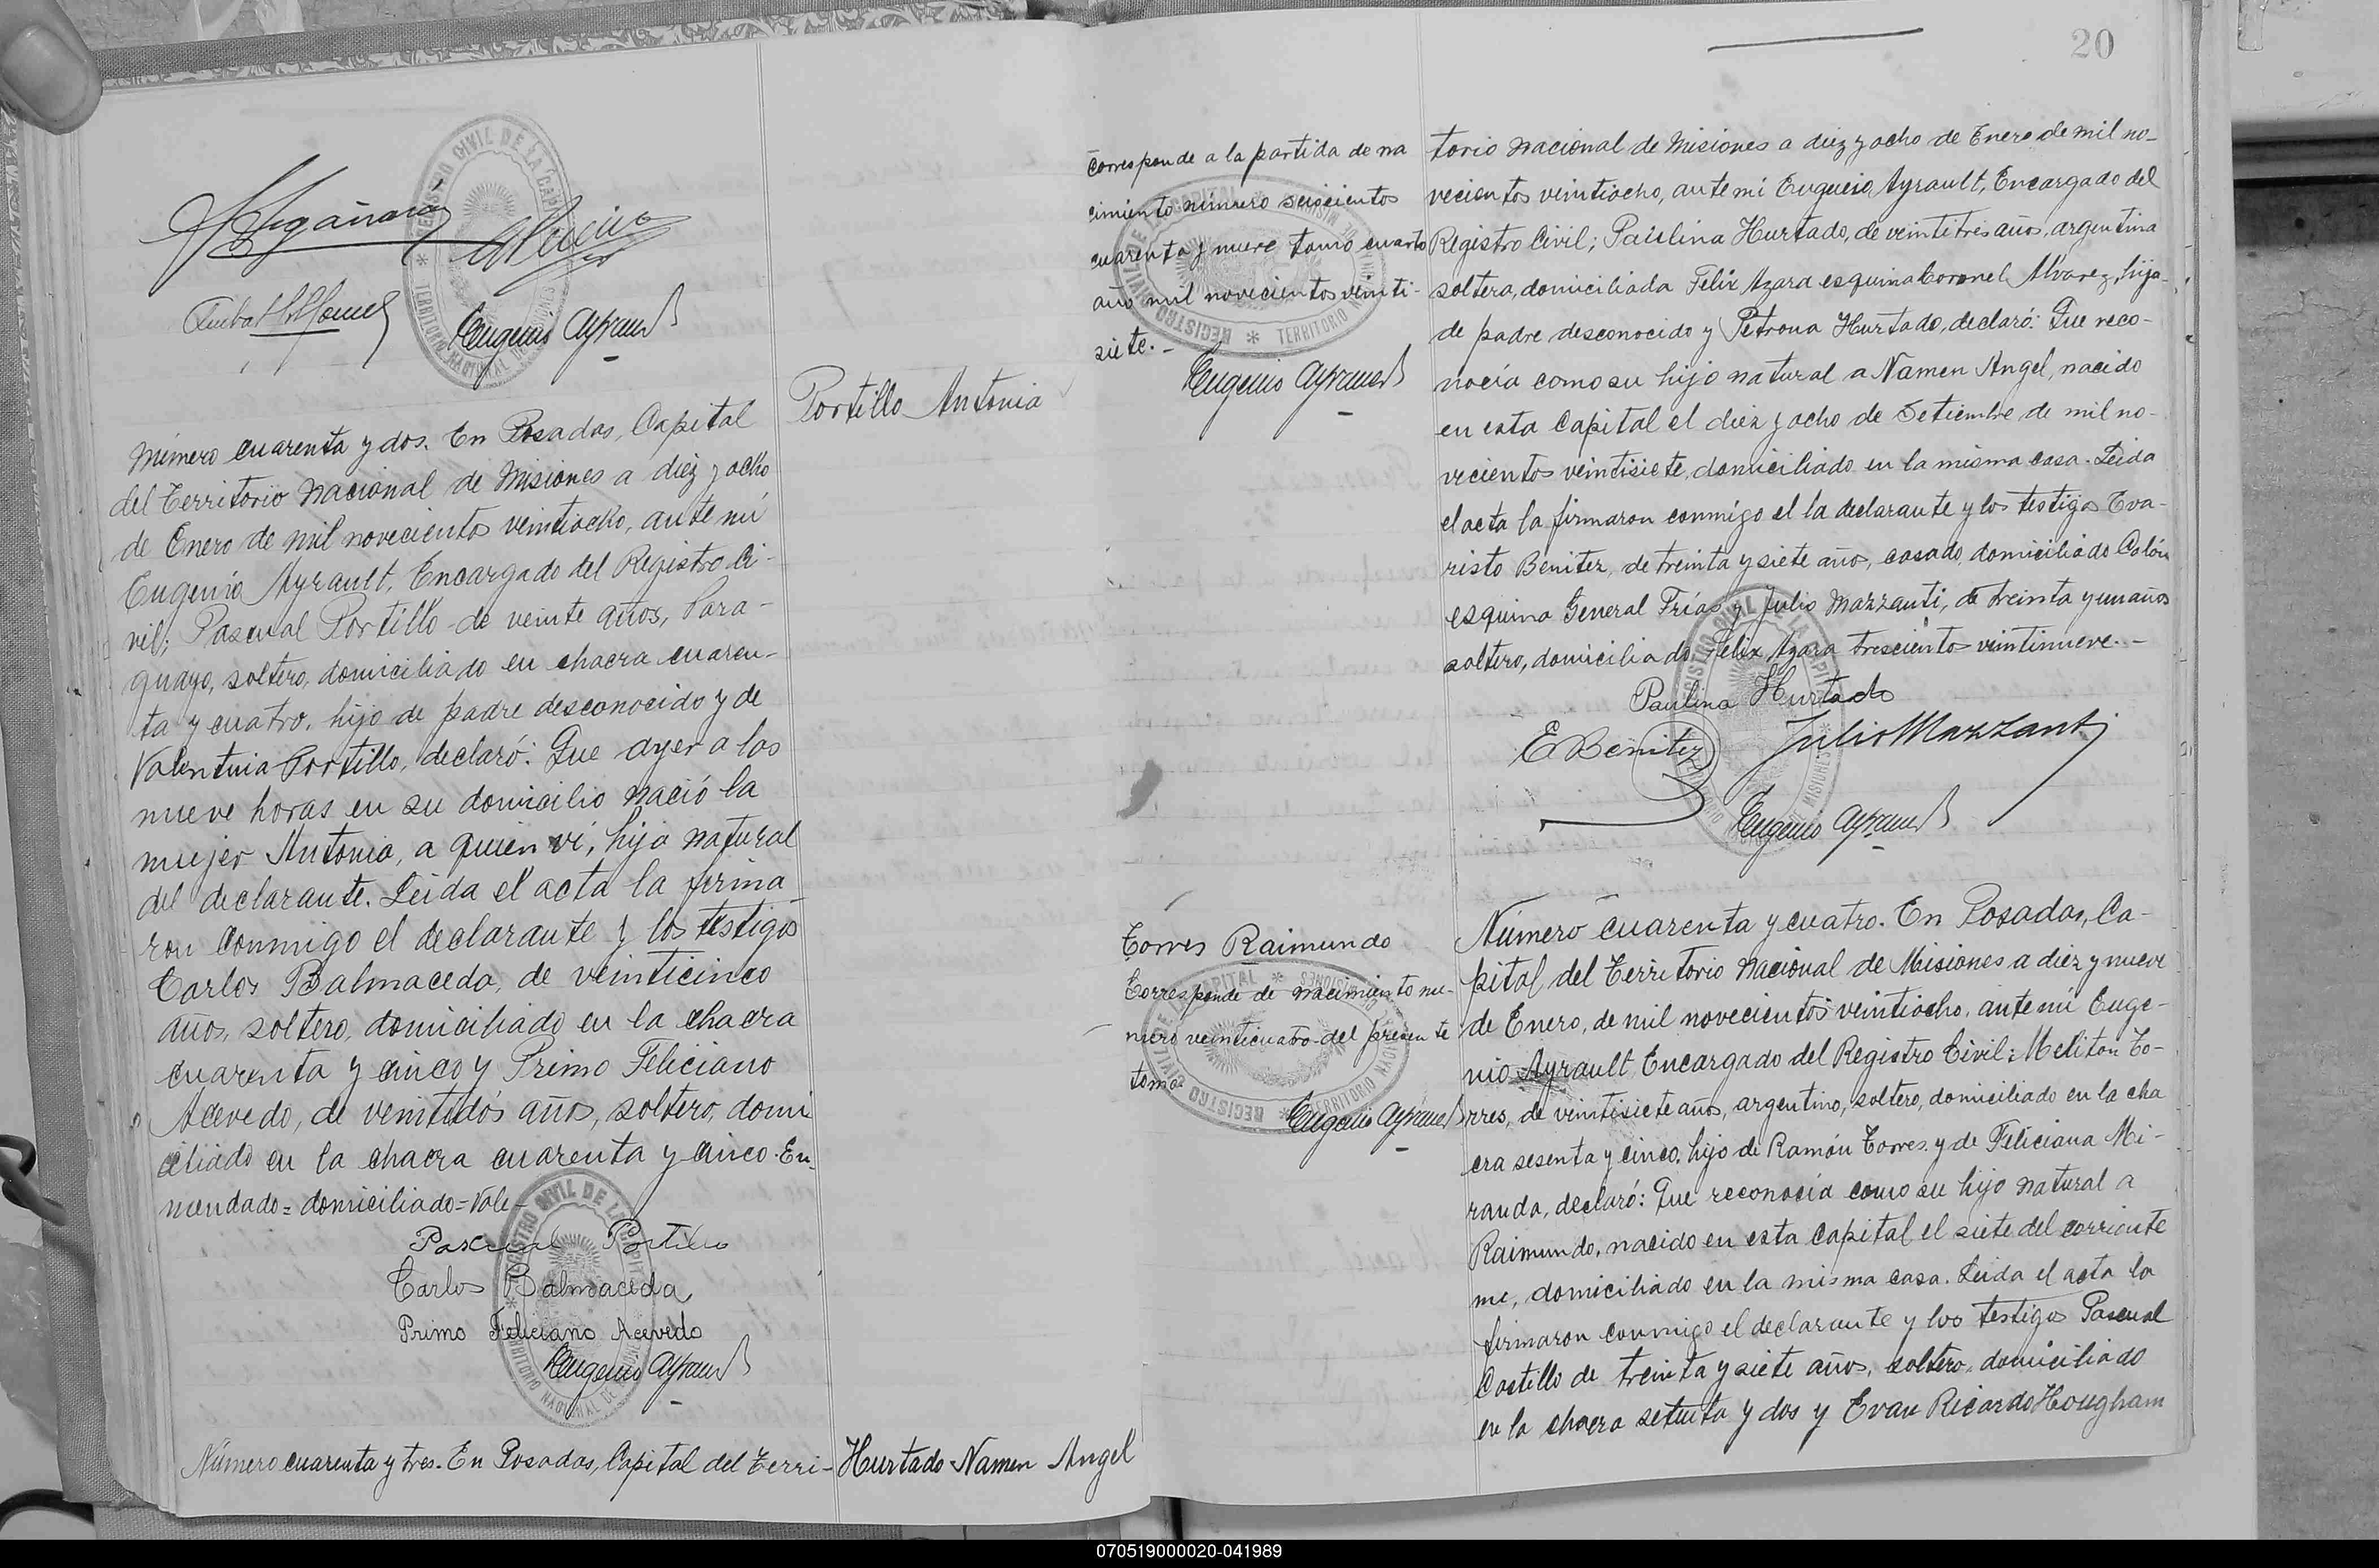 Eugenio Ayrault
Portillo Antonia
Número cuarenta y dos. En Posadas, Capital
del Territorio Nacional de Misiones a diez y ocho
de Enero de mil novecientos veintiocho, ante mí
Eugenio Ayrault, Encargado del Registro Ci-
vil; Pascual Portillo de veinte años, Para-
guayo, soltero, domiciliado en chacra cuaren-
ta y cuatro, hijo de padre desconocido y de
Valentina Portillo, declaró: Que ayer a las
nueve horas en su domicilio nació la
mujer Antonia, a quien vi, hija natural
del declarante. Leida el acta la firma-
ron conmigo el declarante y los testigos
Carlos Balmaceda, de veinticinco
años, soltero, domiciliado en la chacra
cuarenta y cinco y Primo Feliciano
Acevedo, de veintidós años, soltero, domi
ciliado en la chacra cuarenta y cinco. En-
mendado = domiciliado = Vale -
Pascual Portillo
Carlos Balmaceda
Primo Feliciano Acevedo
Eugenio Ayrault
REGISTRO CIVIL DE LA CAPITAL
TERRITORIO NACIONAL DE MISIONES
Número cuarenta y tres. En Posadas, Capital del Terri-
Hurtado Namen Angel
20
Corresponde a la partida de na
cimiento número seiscientos
cuarenta y nueve tomo cuarto
año mil novecientos veinti-
siete. -
Eugenio Ayrault
torio Nacional de Misiones a diez y ocho de Enero de mil no-
vecientos veintiocho, ante mí Eugenio Ayrault, Encargado del
Registro Civil; Paulina Hurtado, de veintitres años, argentina
soltera, domiciliada Felix Azara esquina Coronel Alvarez, hija
de padre desconocido y Petrona Hurtado, declaró: Que reco-
nocía como su hijo natural a Namen Angel, nacido
en esta Capital el diez y ocho de Setiembre de mil no-
vecientos veintisiete, domiciliado en la misma casa. Leida
el acta la firmaron conmigo el la declarante y los testigos Eva-
risto Benitez, de treinta y siete año, casado, domiciliado Colón
esquina General Frías y Julio Mazzanti, de treinta y un años
soltero, domiciliado Felix Azara trescientos veintinueve. -
Paulina Hurtado
E Benitez Julio Mazzanti
Eugenio Ayrault
Torres Raimundo
Corresponde de nacimiento nú-
mero veinticuatro del presente
tomo
Eugenio Ayrault
Número cuarenta y cuatro. En Posadas, Ca-
pital del Territorio Nacional de Misiones a diez y nueve
de Enero, de mil novecientos veintiocho, ante mí Euge-
nio Ayrault Encargado del Registro Civil; Meliton To-
rres, de veintisiete años, argentino, soltero, domiciliado en la cha
cra sesenta y cinco, hijo de Ramón Torres y de Feliciana Mi-
randa, declaró: Que reconocía como su hijo natural a
Raimundo, nacido en esta Capital el siete del corriente
me, domiciliado en la misma casa. Leida el acta la
firmaron conmigo el declarante y los testigos Pascual
Castillo de treinta y siete años, soltero, domiciliado
en la chacra setenta y dos y Evan Ricardo Hougham
070519000020-041989